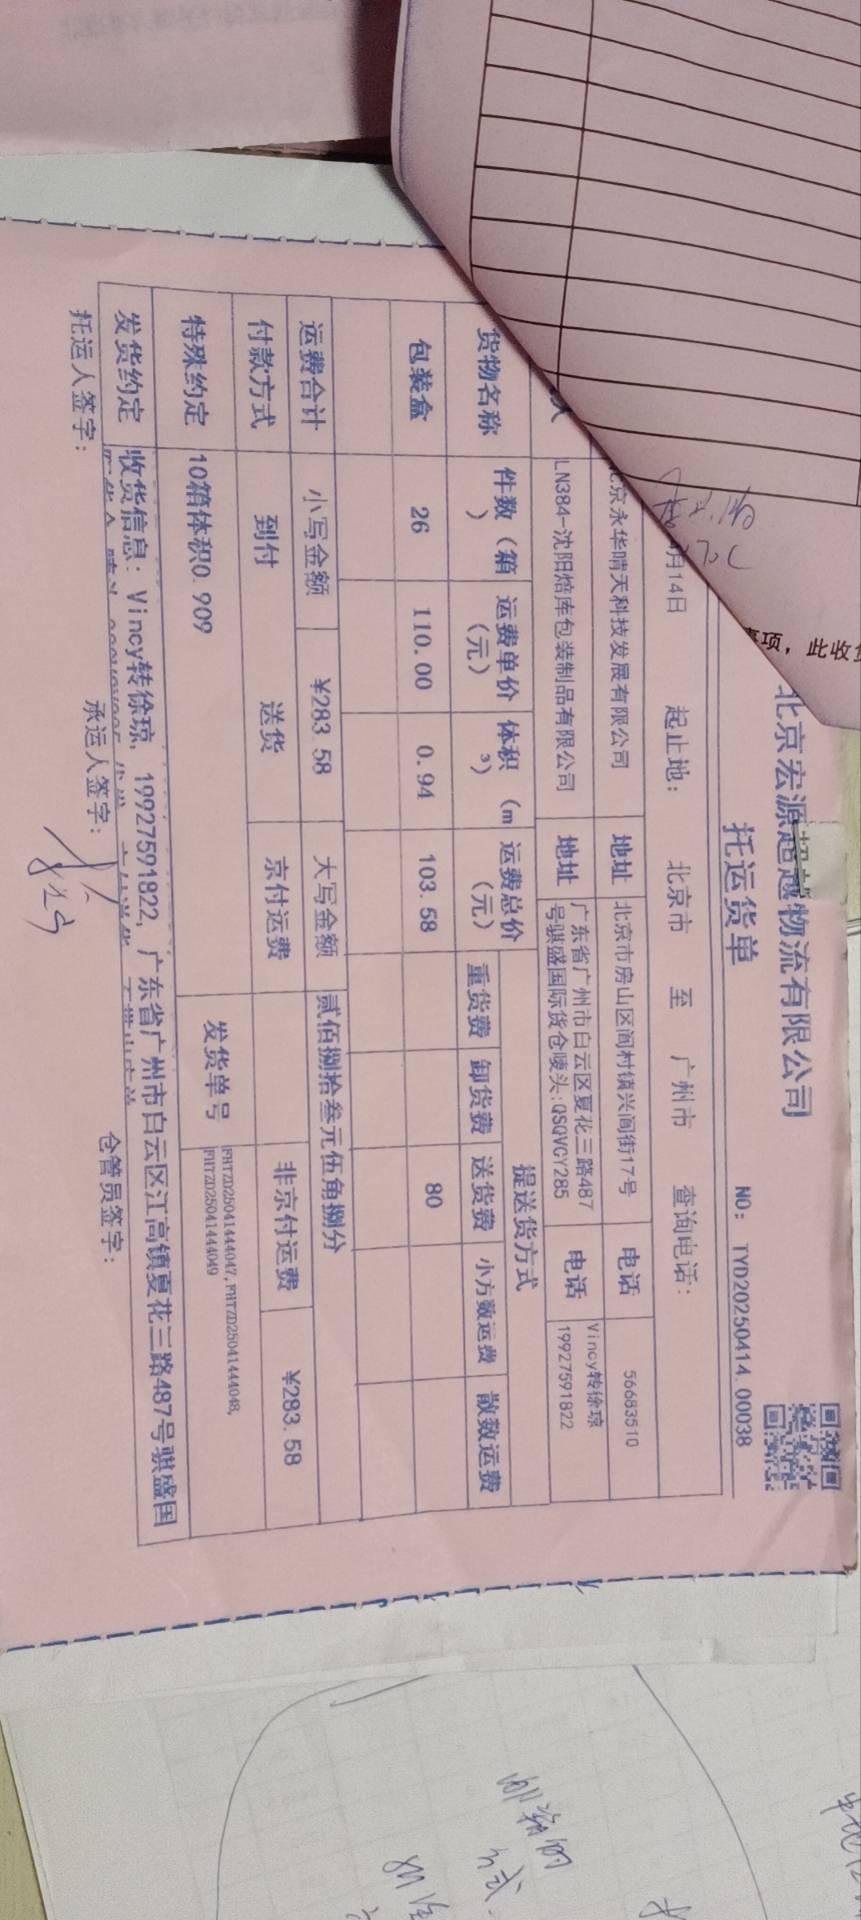 北京宏源超越物流有限公司
托运货单
NO: TYD20250414.00038
月14日 起止地: 北京市 至 广州市 查询电话:
京永华晴天科技发展有限公司 地址 北京市房山区阎村镇兴阎街17号 电话 56683510
LN384-沈阳焙库包装制品有限公司 地址 广东省广州市白云区夏花三路487号骐盛国际货仓唛头:QSQVGY285 电话 Vincy转徐琼 19927591822
货物名称 件数（箱） 运费单价（元） 体积（m³） 运费总价（元） 提送货方式
重货费 卸货费 送货费 小方数运费 散数运费
包装盒 26 110.00 0.94 103.58 80
运费合计 小写金额 ¥283.58 大写金额 贰佰捌拾叁元伍角捌分
付款方式 到付 送货 京付运费 非京付运费 ¥283.58
特殊约定 10箱体积0.909 发货单号 FHTZD25041444047,FHTZD25041444048,
FHTZD25041444049
发货约定 收货信息：Vincy转徐琼, 19927591822, 广东省广州市白云区江高镇夏花三路487号骐盛国
托运人签字: 承运人签字: 仓管员签字:
项，此收